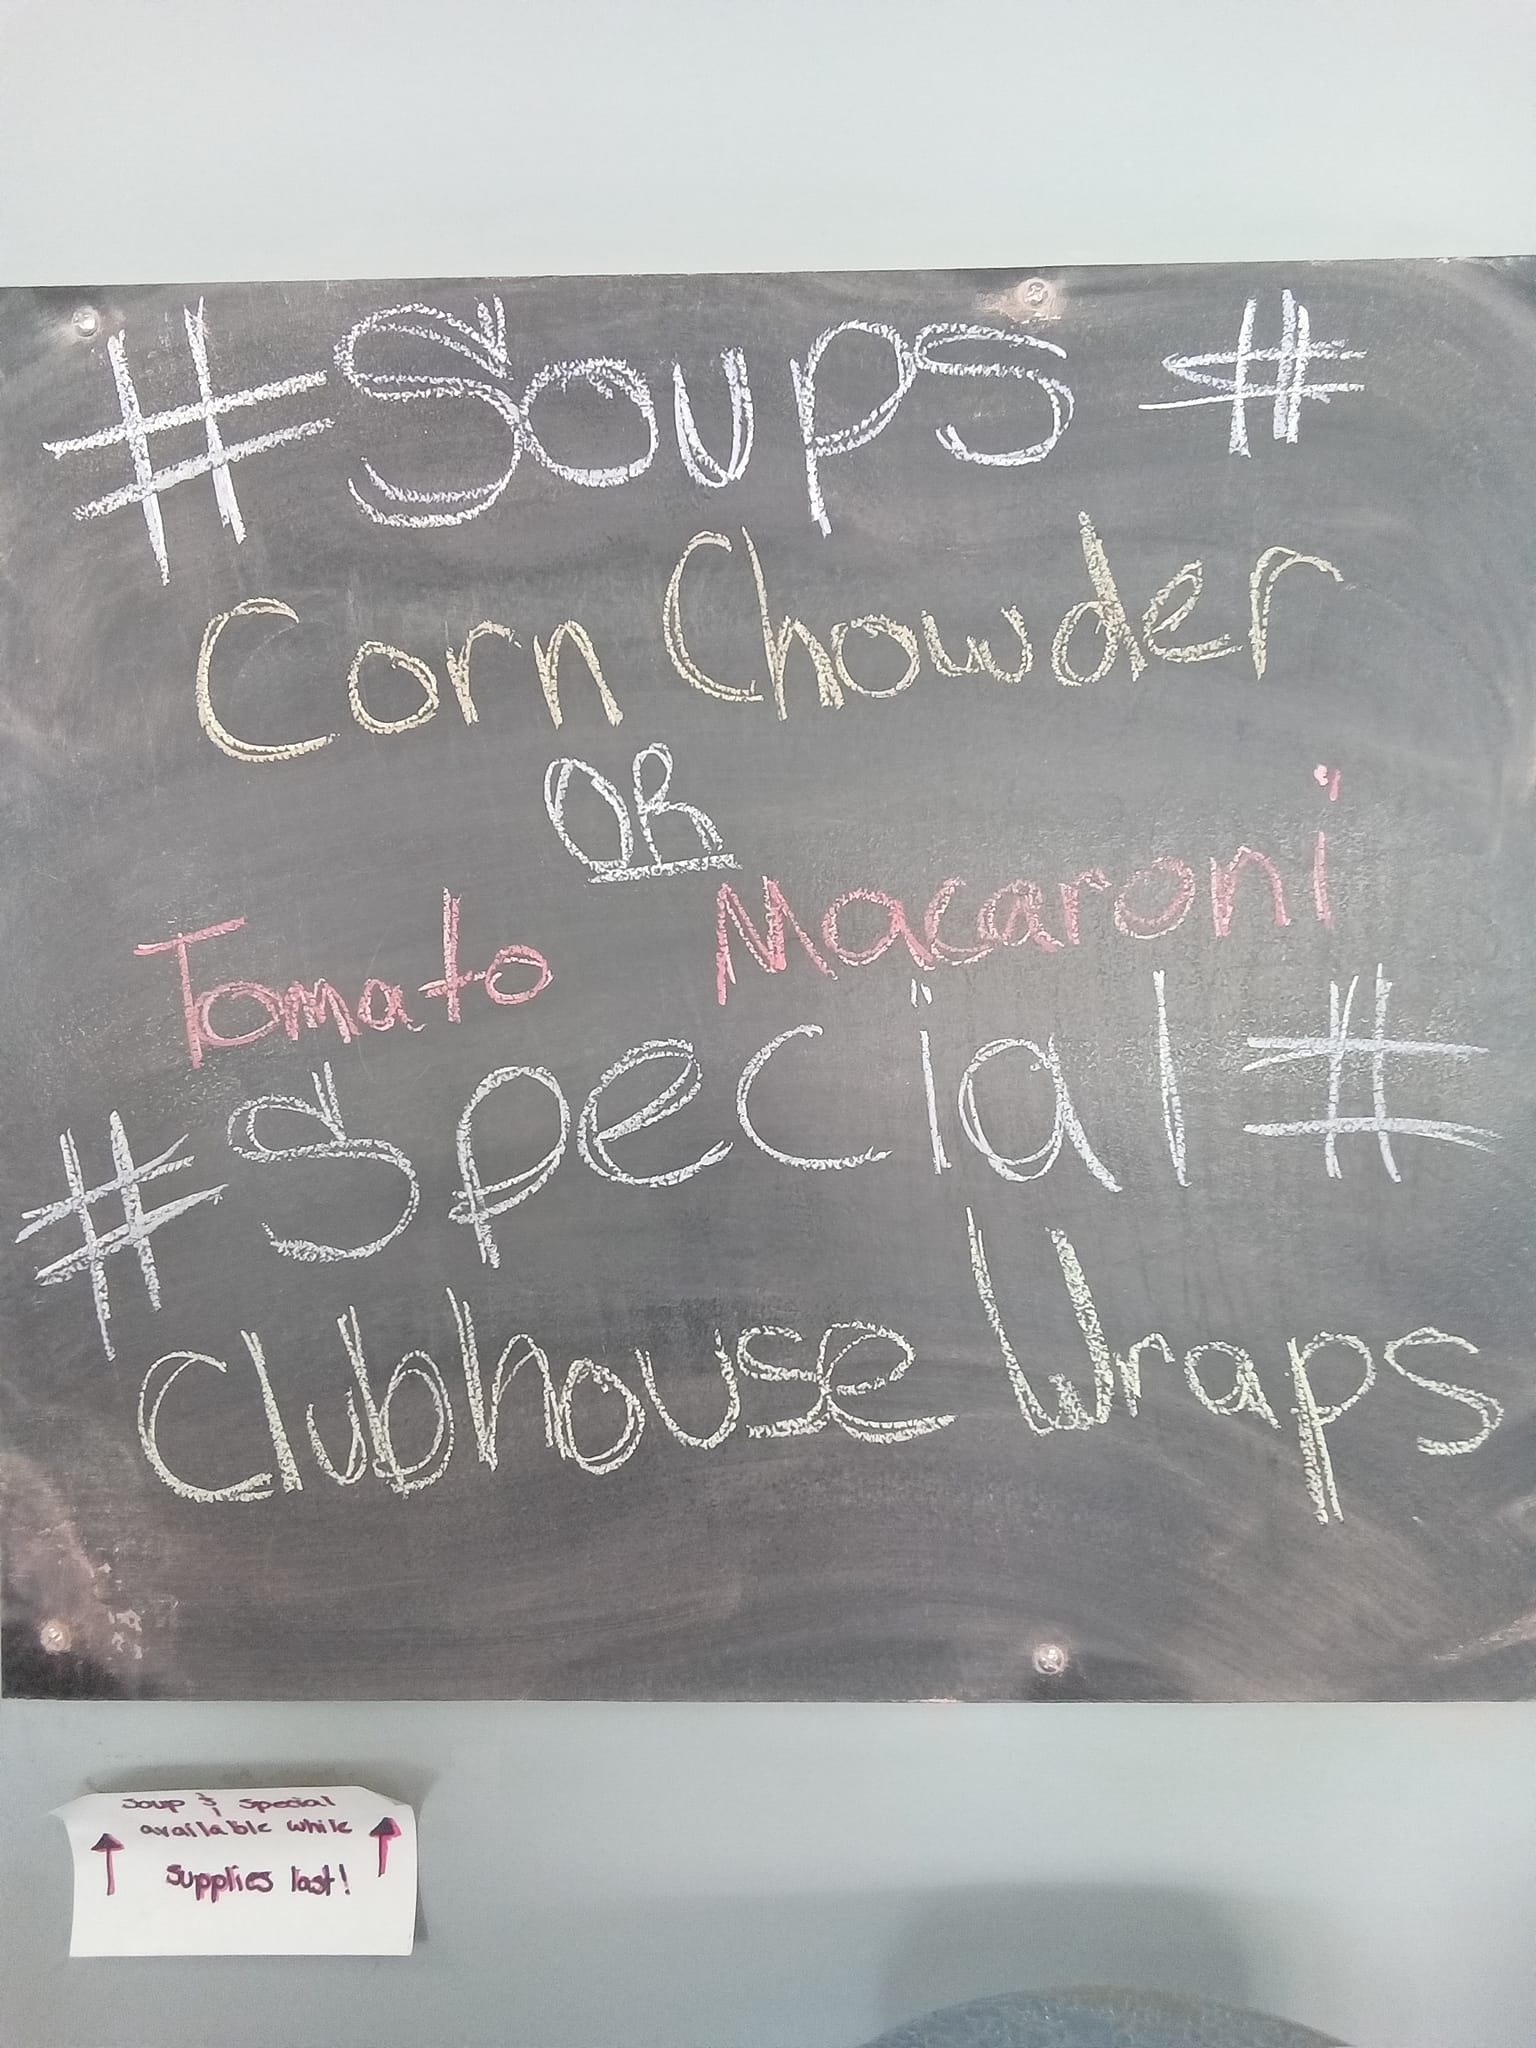 #Soups #
Corn Chowder
OR
Tomato Macaroni
#Special#
Clubhouse Wraps
Soup & Special
available while
Supplies last!